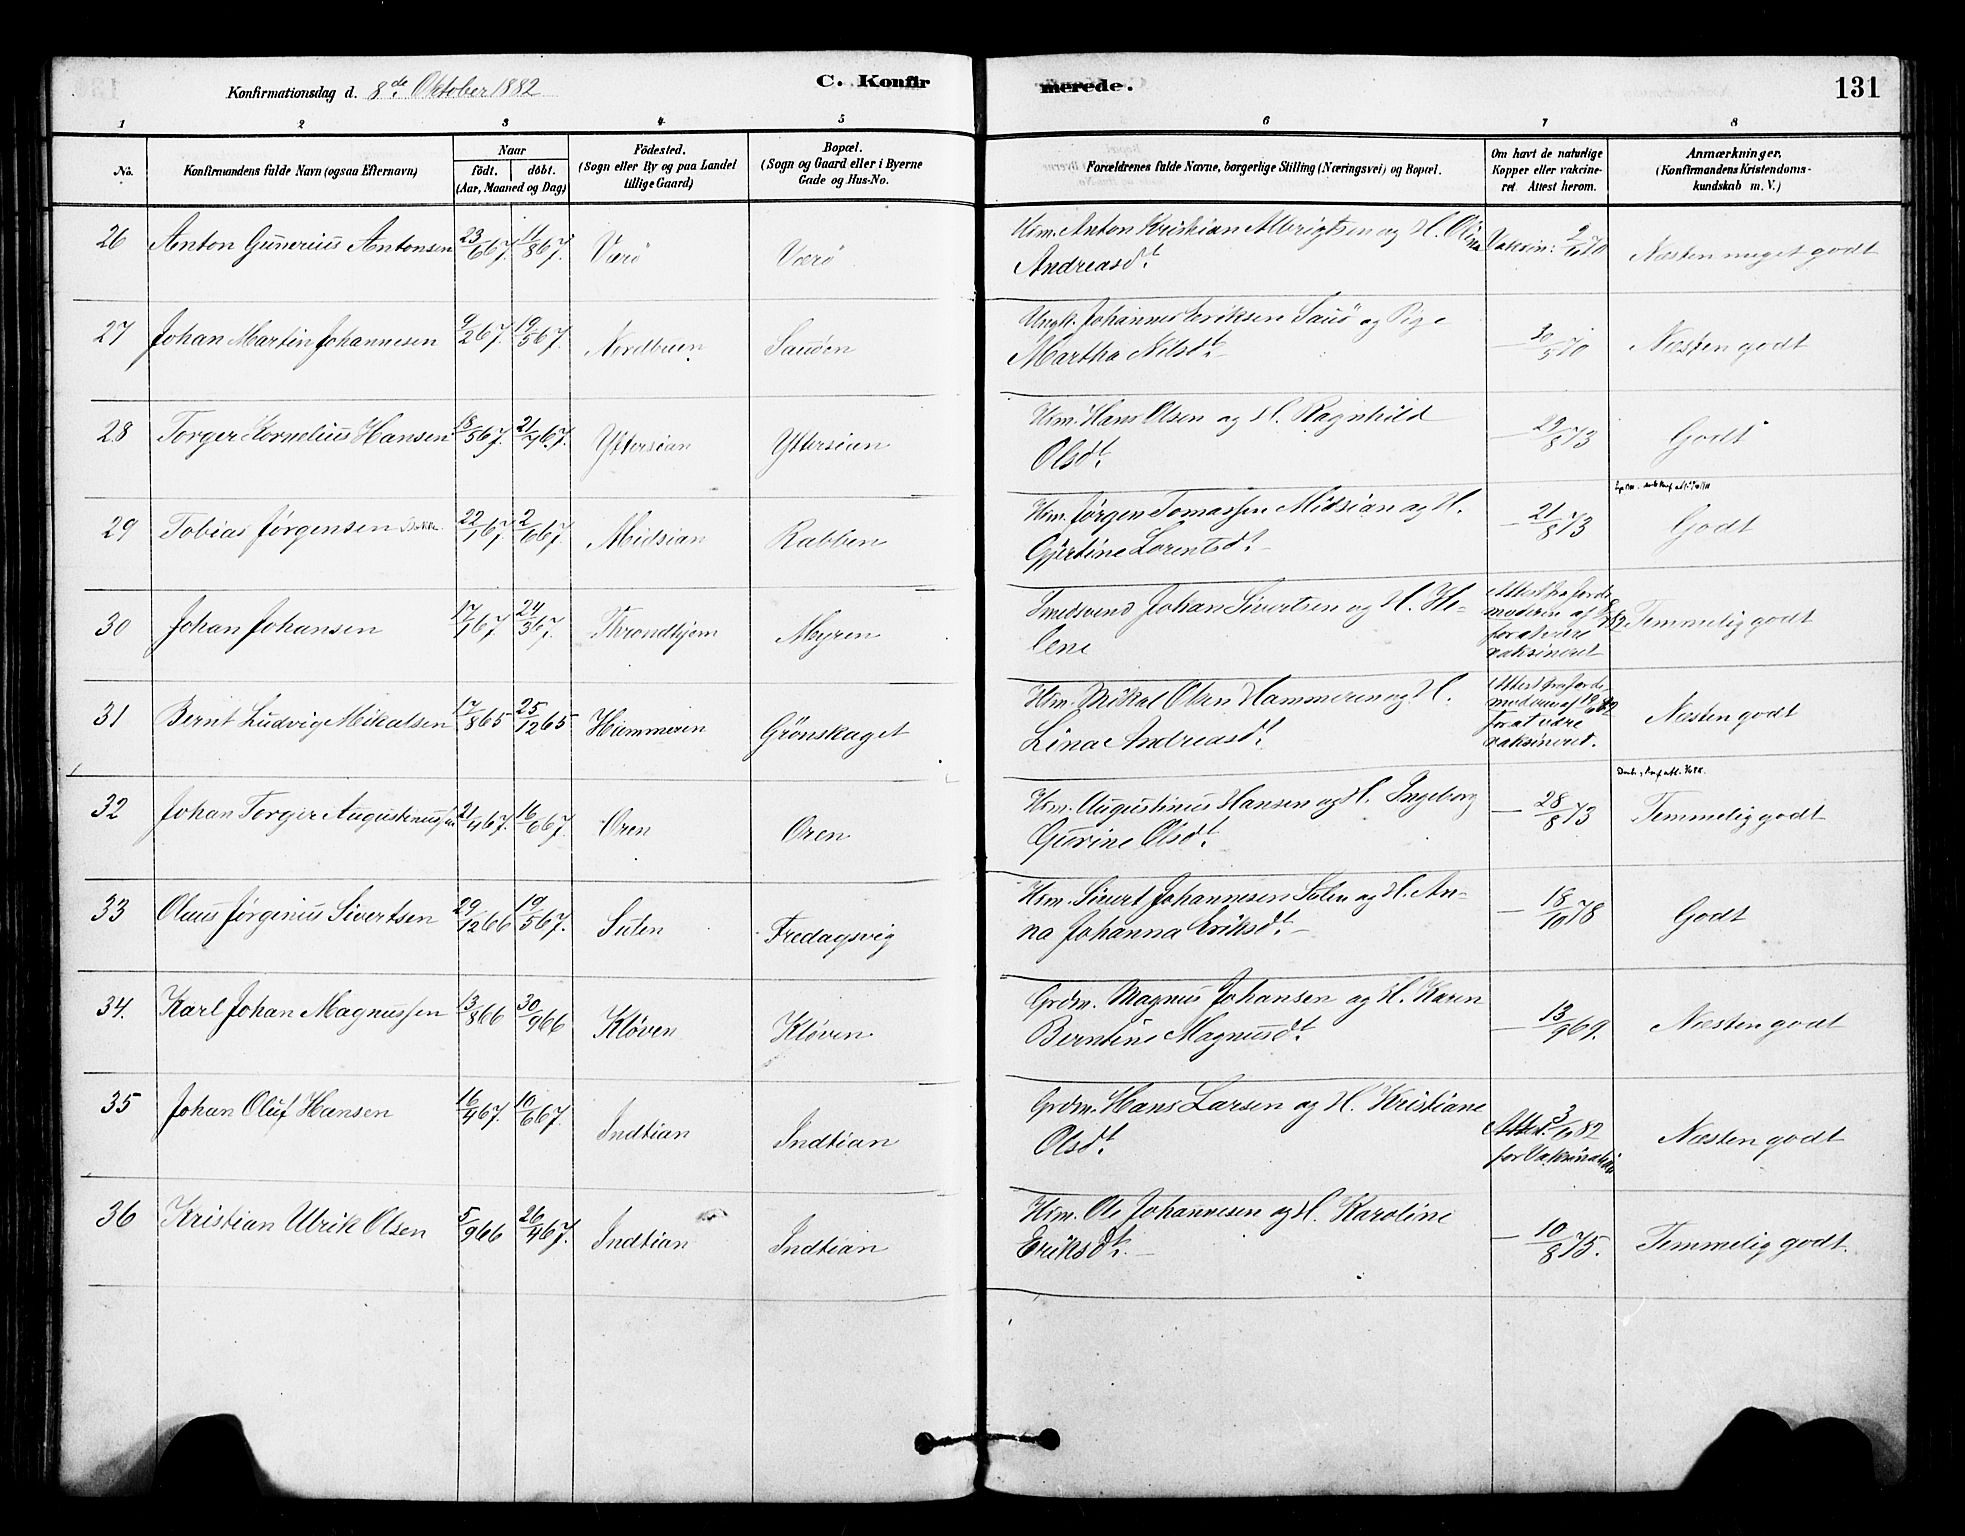 Konfirmationsdag d. 8de Oktober 1882
C. Konfirmerede.
131
1 2 3 4 5 6 7 8
No.
Konfirmandens fulde Navn (ogsaa Efternavn)
Naar
födt. döbt.
(Aar, Maaned og Dag)
Födested.
(Sogn eller By og paa Landet
tillige Gaard)
Bopæl.
(Sogn og Gaard eller i Byerne
Gade og Hus-No.
Forældrenes fulde Navne, borgerlige Stilling (Næringsvei) og Bopæl.
Om havt de naturlige
Kopper eller vakcine-
ret Attest herom.
Anmærkninger.
(Konfirmandens Kristendoms-
kundskab m. V.)
26 Anton Gunerius Antonsen 23/6 67. 11/8 67. Værö Værö Hm. Anton Kristian Albrigtsen og H. Olina Vaksin: 2/6 70 Næsten meget godt
Andreasdt.
27 Johan Martin Johannesen 9/2 67. 19/5 67. Nordbuen Sauöen Ungk. Johannes Eriksen Sauö og Pige — 30/5 70 Næsten godt
Martha Nilsdt. —
28 Torger Kornelius Hansen 18/5 67. 21/7 67. Yttersian Yttersian Hm. Hans Olsen og H. Ragnhild — 29/8 73 Godt
Olsdt.
29 Tobias Jørgensen 22/1 67. 2/6 67. Midsian Rabben Hm. Jørgen Tomassen Midsian og H. — 21/8 73 Godt
Gjertine Lorentsdt. —
30 Johan Johansen 17/1 67. 24/3 67. Throndhjem Myren Smedsvend Johan Sivertsen og H. He-
lene
Attest fra Jorde-
moderen af 82
for at være
vaksineret
Temmelig godt
31 Bernt Ludvig Mikalsen 17/8 65 25/12 65 Hammeren Grönskaget Hm. Mikal Olsen Hammeren og H.
Lina Andreasdt.
Attest fra Jorde-
moderen af 19/6 82
for at være
vaksineret.
Næsten godt
32 Johan Torger Augustinussen 21/4 67. 16/6 67. Oren Oren Hm. Augustinus Hansen og H. Ingeborg — 28/8 73 Temmelig godt
Gurine Olsdt.
33 Olaus Jørginus Sivertsen 29/12 66 19/5 67. Sulen Fredagsvig Hm. Sivert Johannesen Sulen og H. An- — 18/10 78 Godt
na Johanna Eriksdt. —
34. Karl Johan Magnussen 13/8 66 30/9 66 Kløven Kløven Grdm. Magnus Johansen og H. Karen — 13/9 69. Næsten godt
Berntine Magnusdt.
35 Johan Oluf Hansen 16/4 67. 10/6 67. Indtian Indtian Grdm. Hans Larsen og H. Kristiane Attest: 3/6 82 Næsten godt
Olsdt. for Vaksination
36 Kristian Ulrik Olsen 5/9 66 26/4 67. Indtian Indtian Hm. Ole Johannesen og H. Karoline — 10/8 75. Temmelig godt.
Eriksdt. —